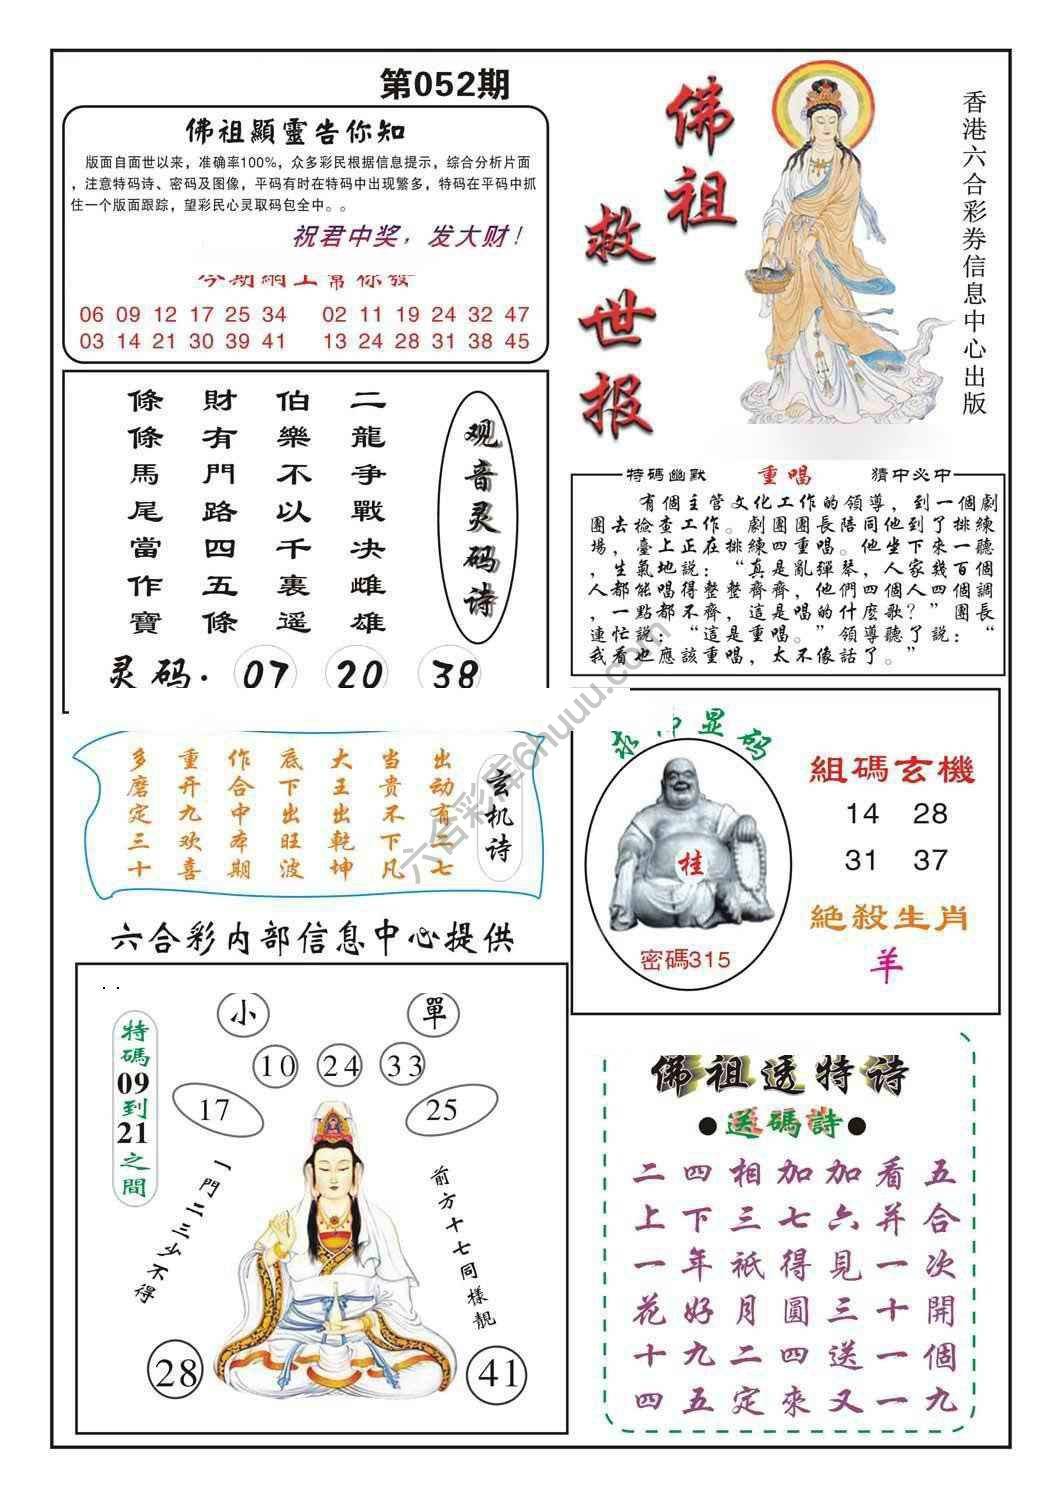 第052期
佛祖顯靈告你知
版面自面世以来，准确率100%，众多彩民根据信息提示，综合分析片面
，注意特码诗、密码及图像，平码有时在特码中出现繁多，特码在平码中抓
住一个版面跟踪，望彩民心灵取码包全中。。
祝君中奖，发大财！
今期網上幫你發
06 09 12 17 25 34 02 11 19 24 32 47
03 14 21 30 39 41 13 24 28 31 38 45
佛祖
救世报
香港六合彩券信息中心出版
观音灵码诗
二龍争戰决雌雄
伯樂不以千裏遥
財有門路四五條
條條馬尾當作寶
灵码·07 20 38
特碼幽默 重唱 猜中必中
有個主管文化工作的領導，到一個劇
團去檢查工作。劇團團長陪同他到了排練
場，臺上正在排練四重唱。他坐下來一聽
，生氣地説：“真是亂彈琴，人家幾百個
人都能唱得整整齊齊，他們四個人四個調
，一點都不齊，這是唱的什麽歌？”團長
連忙説：“這是重唱。”領導聽了説：“
我看也應該重唱，太不像話了。”
玄机诗
出动有二七
当贵不下凡
大王出乾坤
底下出旺波
作合中本期
重开九欢喜
多磨定三十
显码
桂
密碼315
組碼玄機
14 28
31 37
絶殺生肖
羊
六合彩内部信息中心提供
特碼09到21之間
小 單
10 24 33
17 25
一門二三少不得
前方十七同樣靚
28 41
佛祖透特诗
●送碼詩●
二四相加加看五
上下三七六并合
一年祇得見一次
花好月圓三十開
十九二四送一個
四五定來又一九
六合彩库6huuu.com